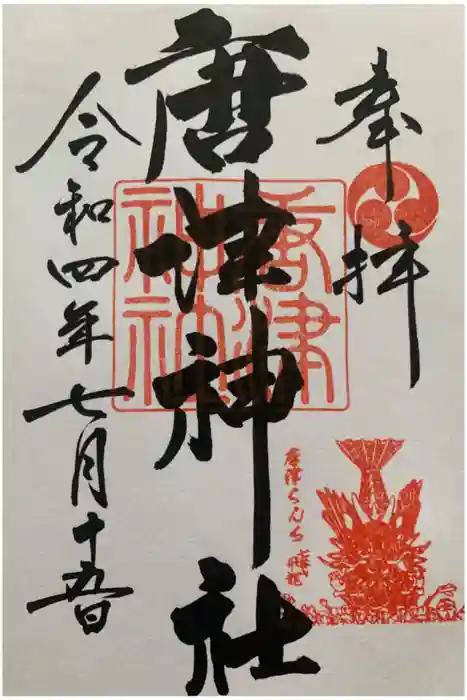 奉拝
唐津神社
令和四年七月十五日
唐津神社
唐津くんち
飛龍